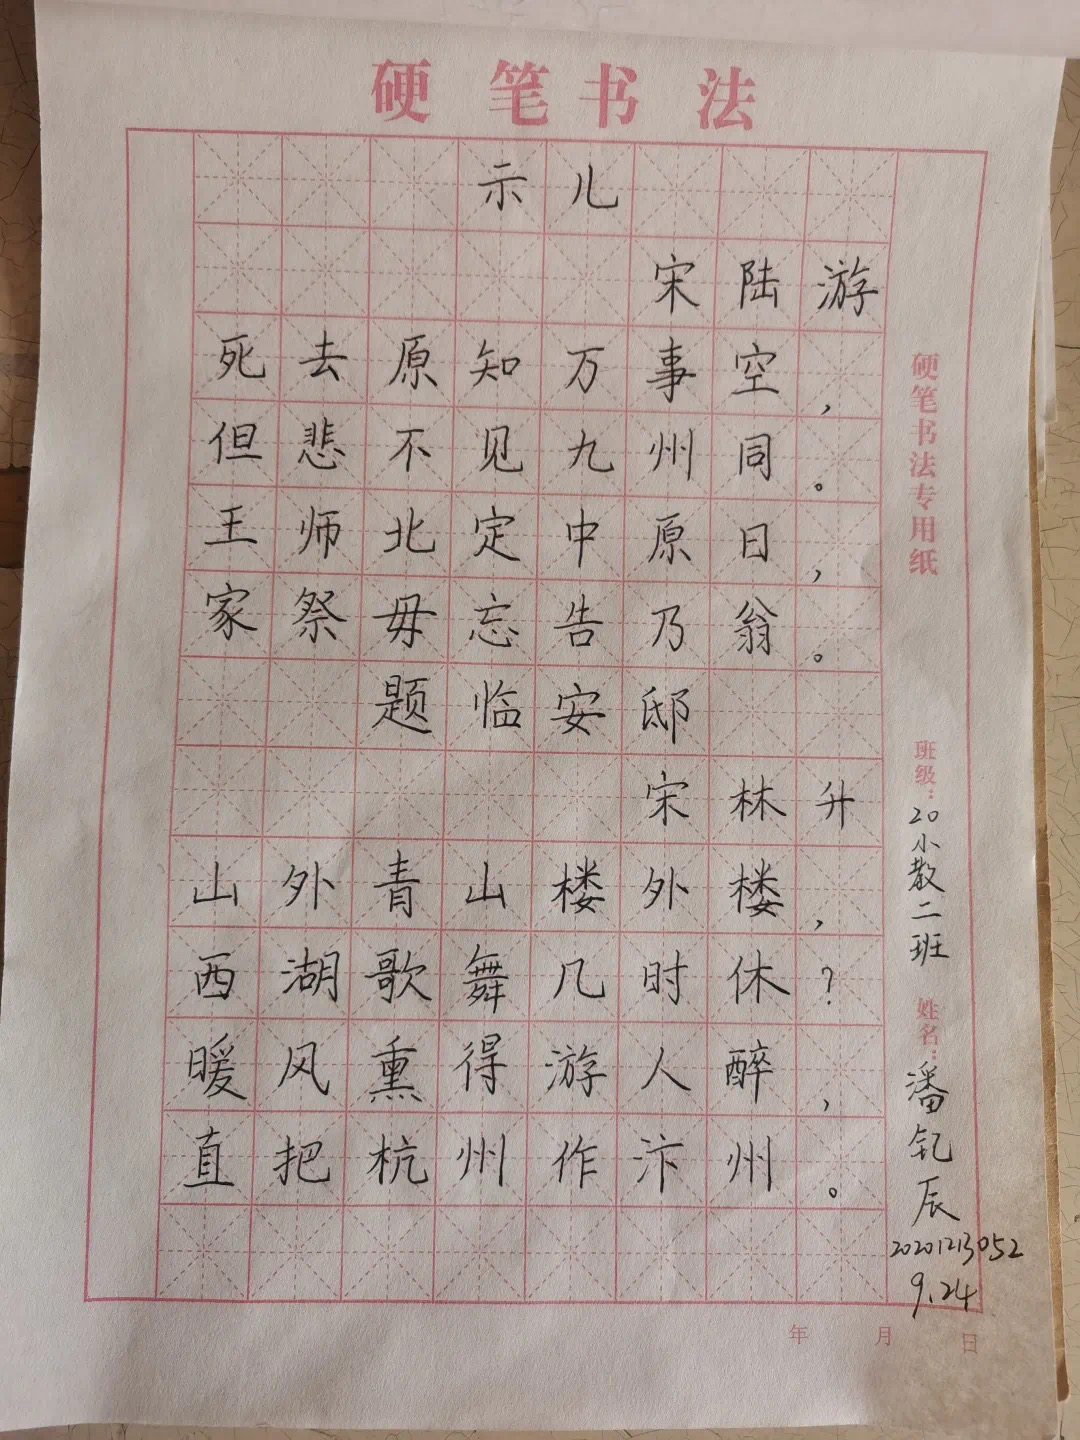 硬笔书法
示儿
宋陆游
死去原知万事空，
但悲不见九州同。
王师北定中原日，
家祭毋忘告乃翁。
题临安邸
宋林升
山外青山楼外楼，
西湖歌舞几时休？
暖风熏得游人醉，
直把杭州作汴州。
硬笔书法专用纸
班级：20小教二班
姓名：潘钇辰
20201213052
9.24
年 月 日